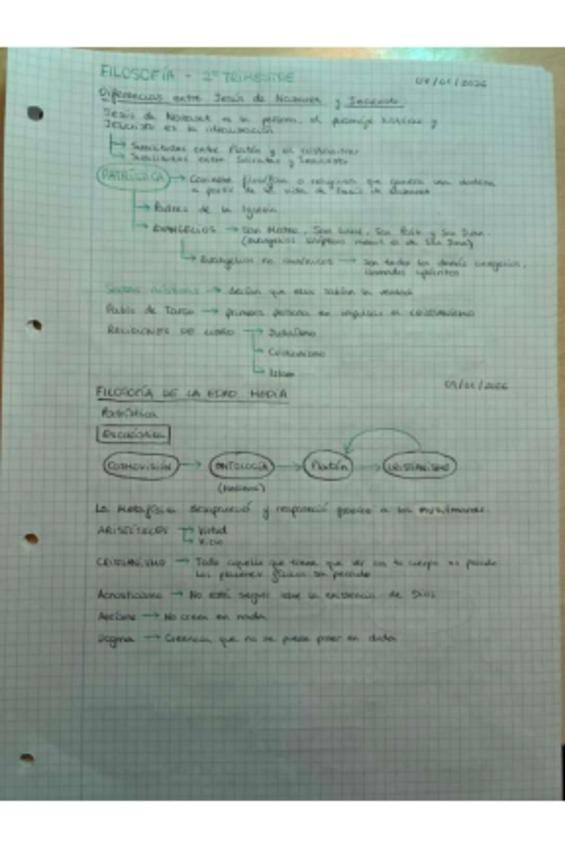 FILOSOFÍA - 2º TRIMESTRE 07/01/2026
Diferencias entre Jesús de Nazaret y Jesucristo
Jesús de Nazaret es la persona, el personaje histórico y
Jesucristo es la idealización
→ Similitudes entre Platón y el cristianismo
→ Similitudes entre Sócrates y Jesucristo
PATRÍSTICA → Corriente filosófica o religiosa que genera una doctrina
a partir de la vida de Jesús de Nazaret
→ Padres de la Iglesia
→ EVANGELIOS → San Mateo, San Lucas, San y San Juan.
(Evangelios sinópticos menos el de San Juan)
→ Evangelios no canónicos → Son todos los demás evangelios,
llamados apócrifos
→ decían que ellos sabían la verdad
Pablo de Tarso → primera persona en impulsar el CRISTIANISMO
RELIGIONES DE LIBRO → Judaísmo
→ Cristianismo
→ Islam
FILOSOFÍA DE LA EDAD MEDIA 09/01/2026
Patrística
Escolástica
COSMOVISIÓN → ONTOLOGÍA → Platón → CRISTIANISMO
La Metafísica desapareció y reapareció gracias a los musulmanes.
ARISTÓTELES → Virtud
→ Vicio
CRISTIANISMO → Todo aquello que tiene que ver con tu cuerpo es pecado
Los placeres físicos son pecado
Agnosticismo → No está seguro sobre la existencia de Dios
Ateísmo → No creen en nada
Dogma → Creencia que no se puede poner en duda